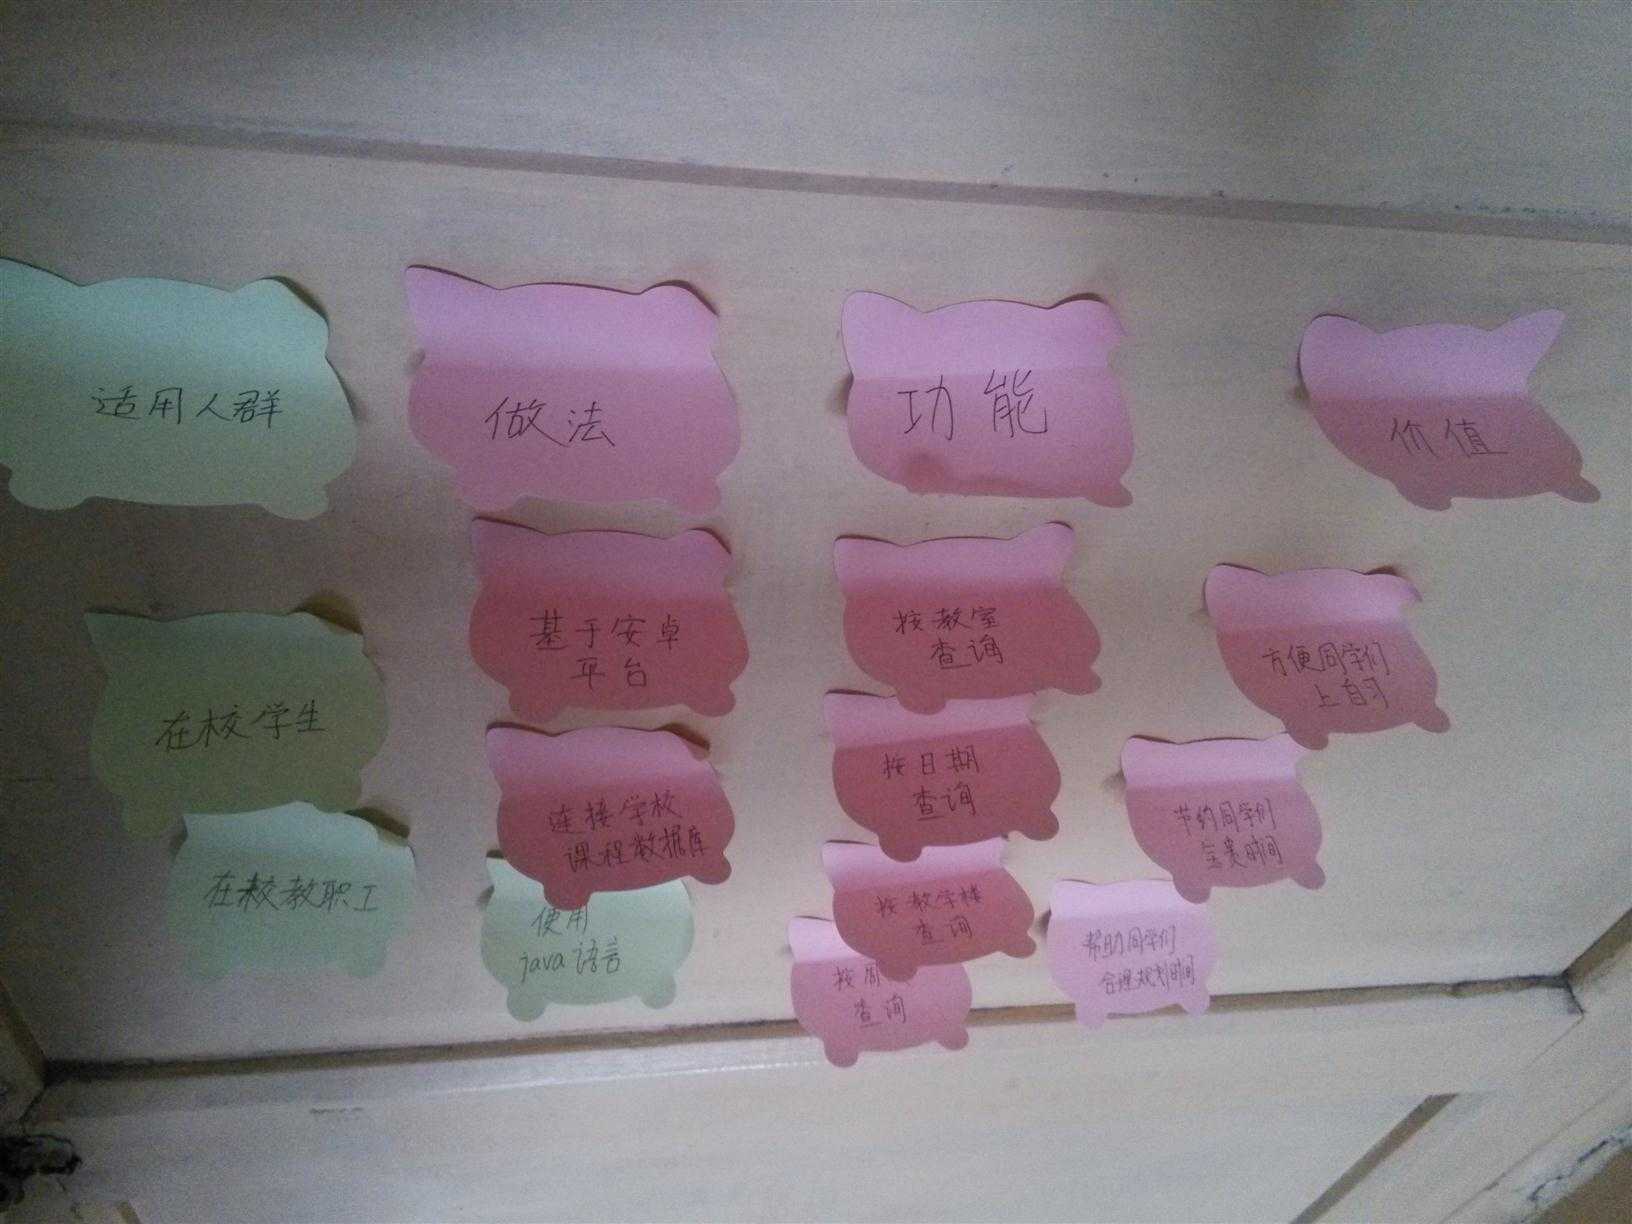 适用人群
做法
功能
价值
在校学生
在校教职工
基于安卓
平台
连接学校
课程数据库
使用
java语言
按教室
查询
按日期
查询
按教学楼
查询
按周
查询
方便同学们
上自习
节约同学们
宝贵时间
帮助同学们
合理规划时间